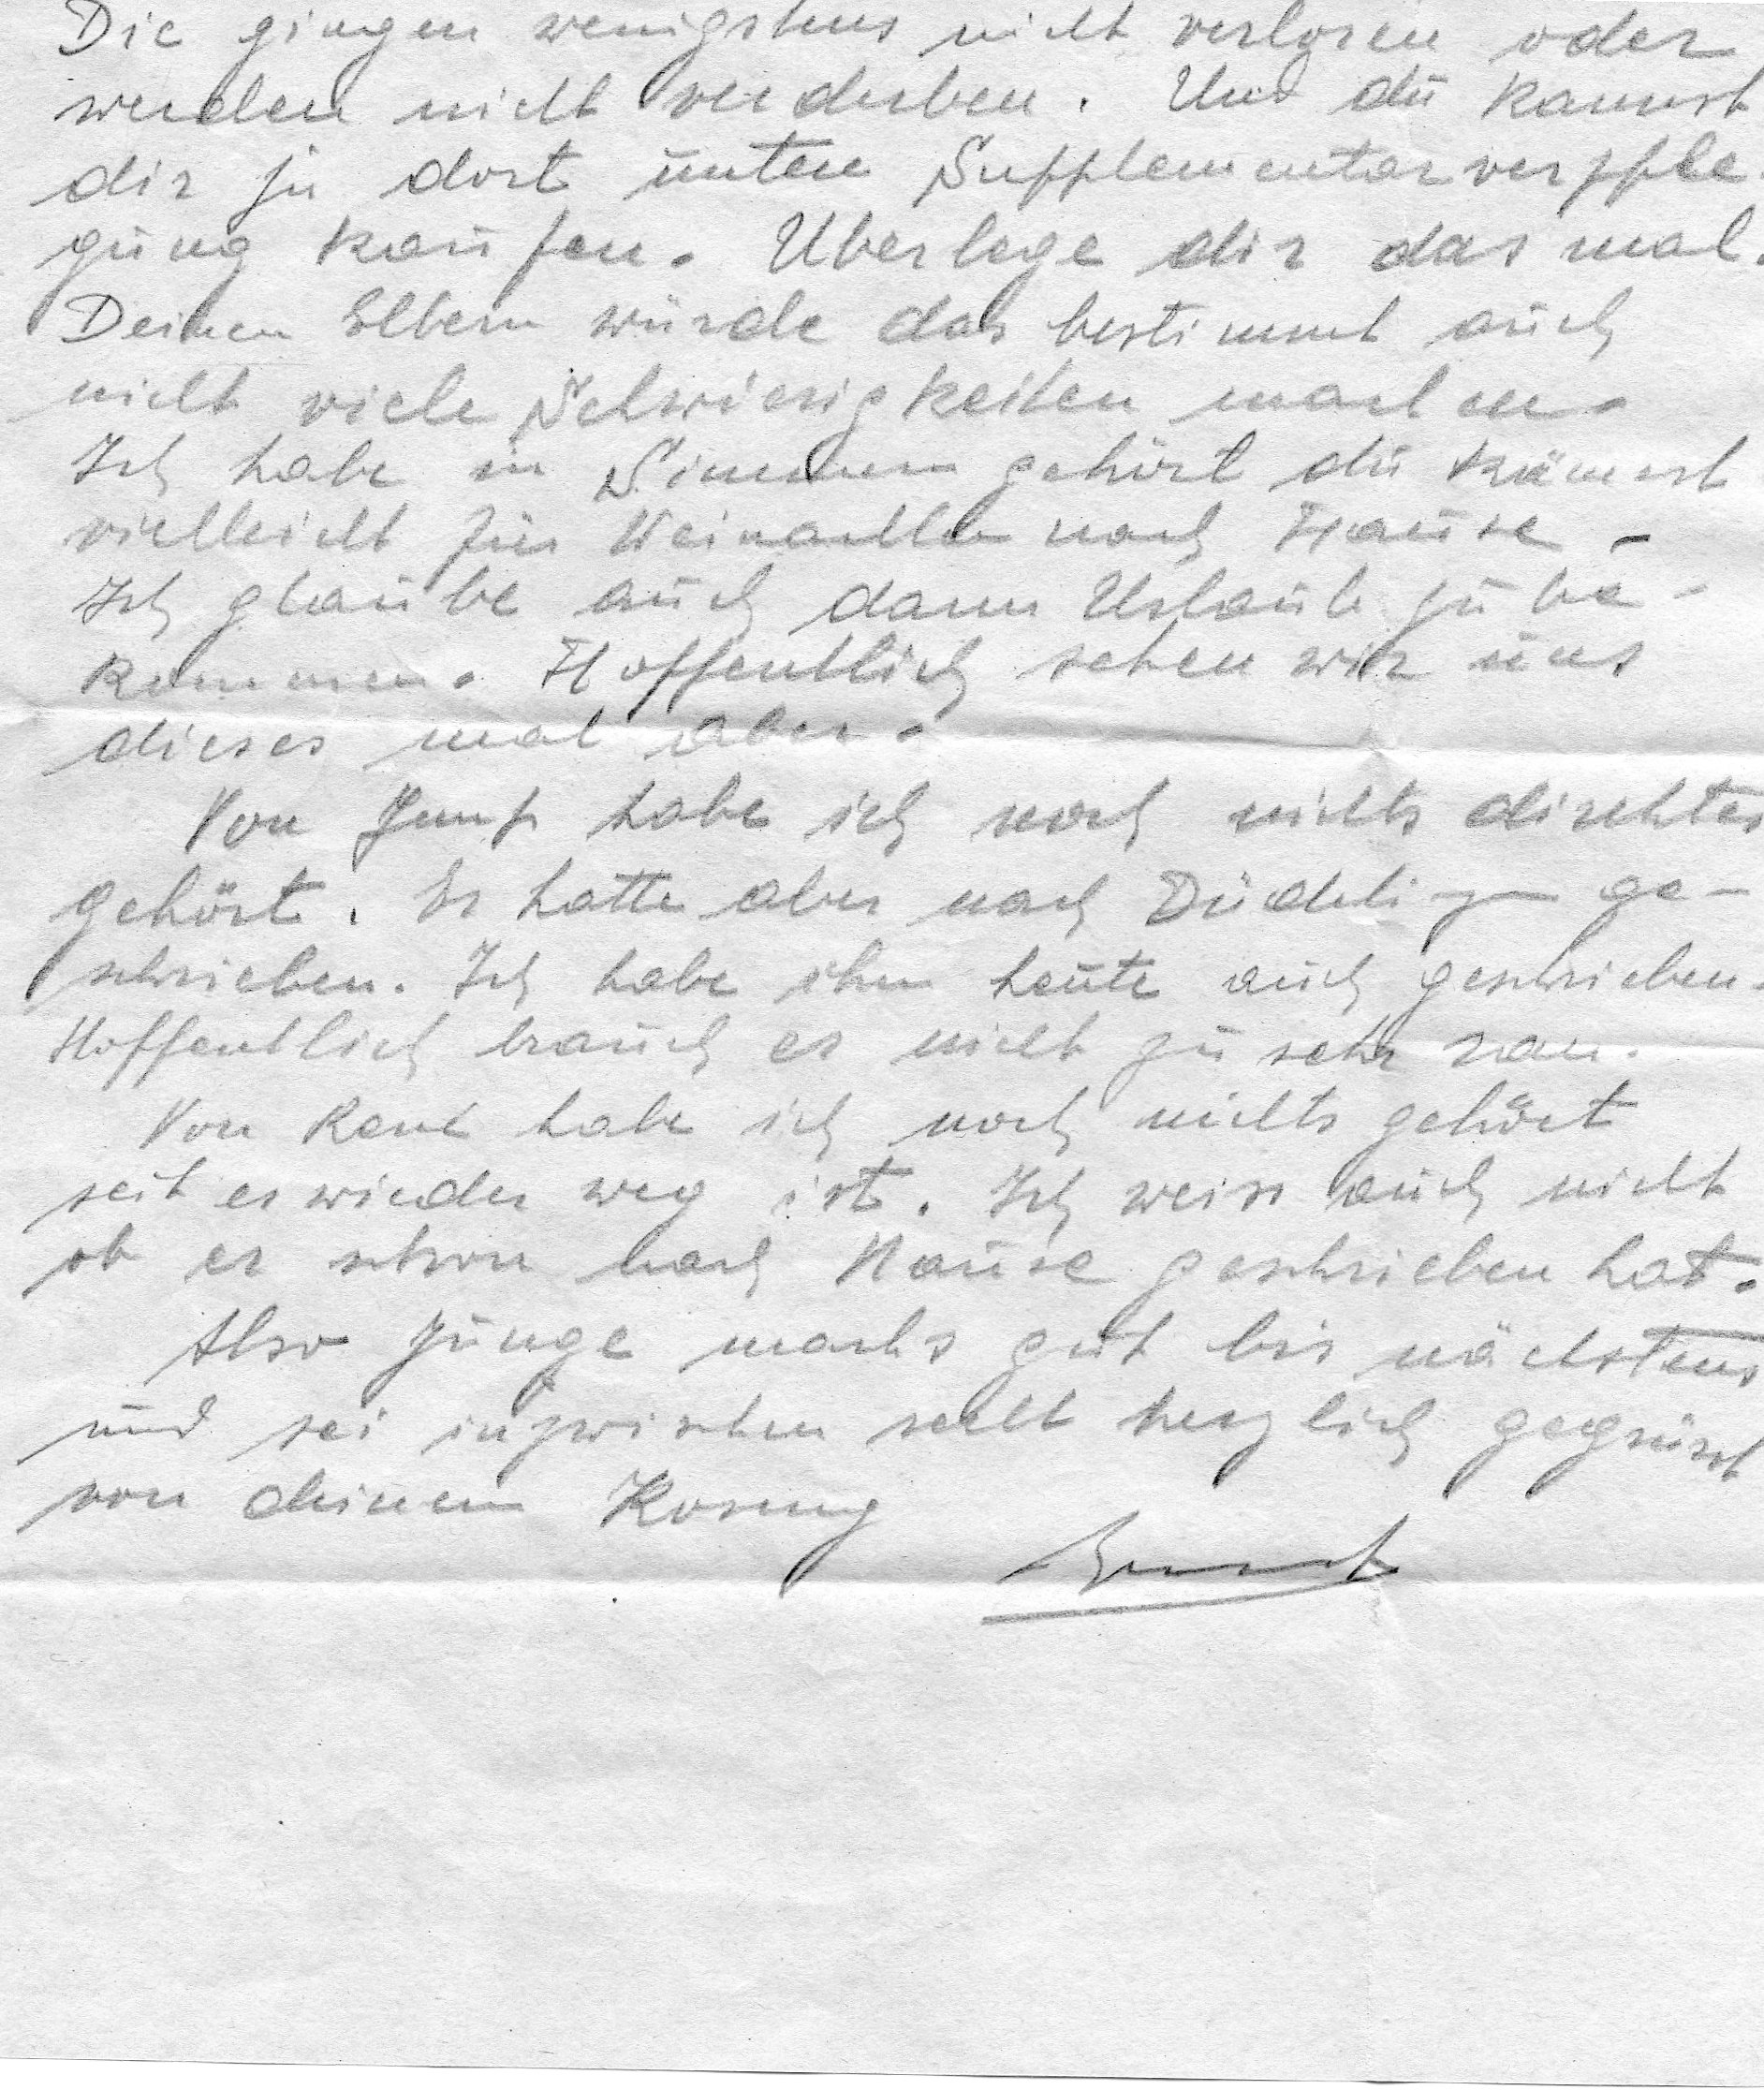 Die gingen wenigstens nicht verloren oder
werden nicht verderben. Und du kannst
dir ja dort unten Supplementarverpfle-
gung kaufen. Uberlege dir das mal.
Deinen Eltern würde das bestimmt auch
nicht viele Schwierigkeiten machen.
Ich habe in gehört du kämest
vielleicht für Weinachten nach Hause.
Ich glaube auch dann Urlaub zu be-
kommen. Hoffentlich sehen wir uns
dieses mal aber.
Von habe ich noch nichts direktes
gehört. Er hatte aber nach Düdelingen ge-
schrieben. Ich habe ihm heute auch geschrieben.
Hoffentlich brauch er nicht zu sehr ran.
Von René habe ich noch nichts gehört
seit er wieder weg ist. Ich weiss auch nicht
ob er schon nach Hause geschrieben hat.
Also Junge machs gut bis nächstens
und sei inzwischen recht herzlich gegrüsst
von deinem